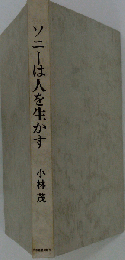 ソニーは人を生かす
小林茂